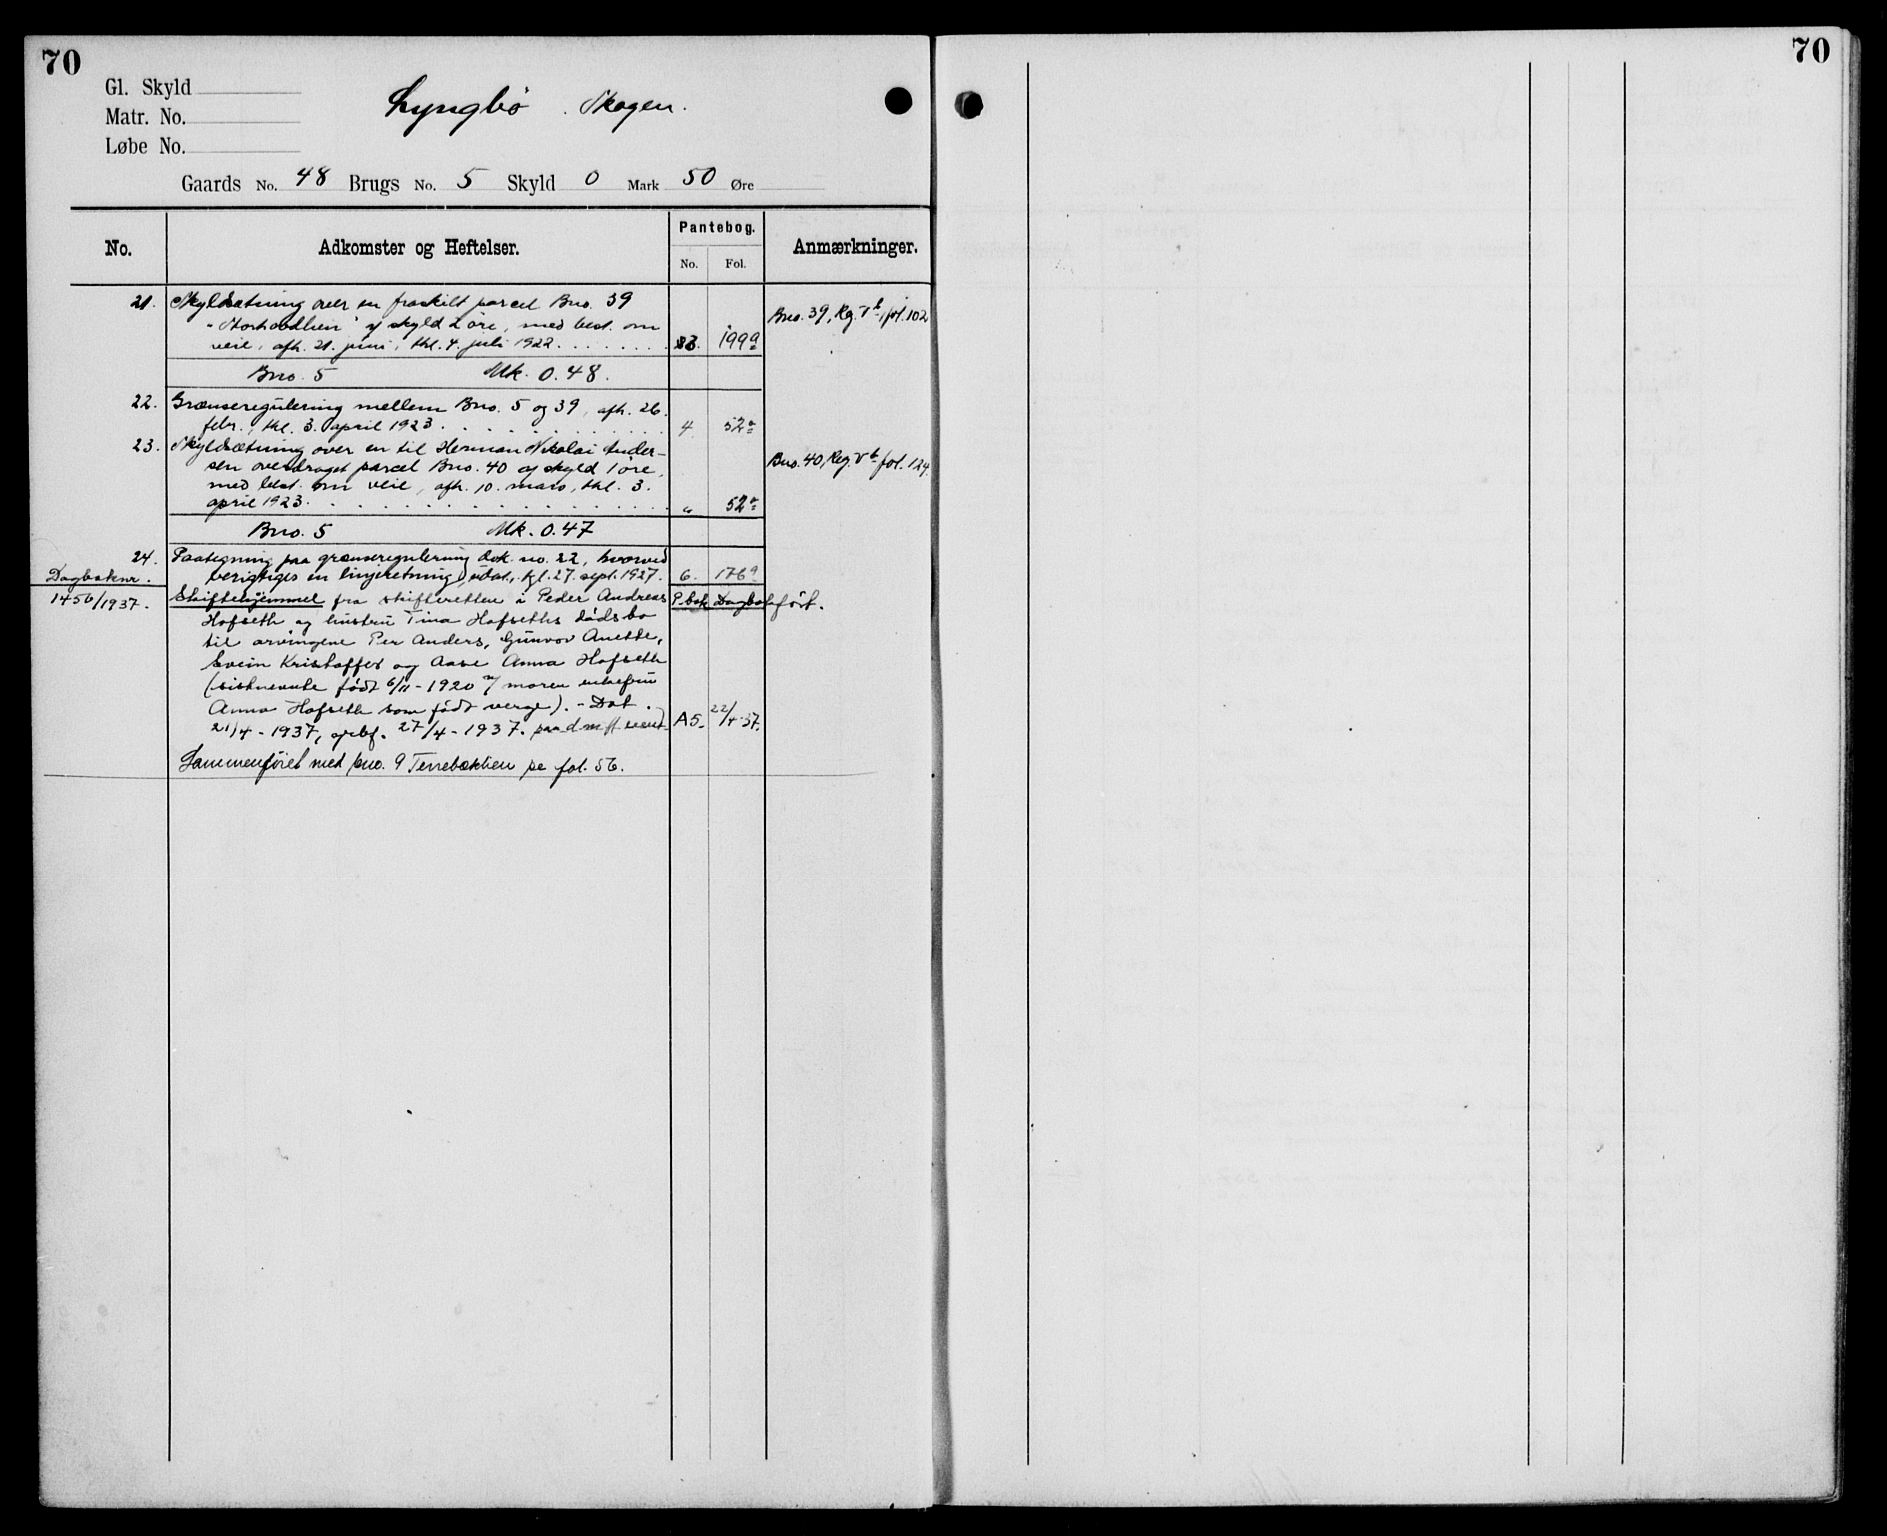 70
70
Gl. Skyld
Matr. No.
Løbe No.
Lyngbö . Skogen.
Gaards No. 48 Brugs No. 5 Skyld 0 Mark 50 Øre
No. Adkomster og Heftelser. Pantebog. Anmærkninger.
No. Fol.
21. Skyldsætning over en fraskilt parcel Bno. 39 Bno. 39, Reg. V b, fol. 102
af skyld 2 øre, med best. om
veie, afh. 21. juni, thl. 4. juli 1922 . . . . . . . 83. 199 a
Bno. 5 Mk. 0.48.
22. Grænseregulering mellem Bno. 5 og 39, afh. 26.
febr., thl. 3. april 1923. . . . . . . . . . . 4 52 a
23. Skyldsætning over en til Herman Nikolai Ander-
sen overdraget parcel Bno. 40 af skyld 1 øre, Bno. 40, Reg. V b fol. 124.
med best. om veie, afh. 10. mars, thl. 3.
april 1923. . . . . . . . . . . . . . . . „ 52 a
Bno. 5 Mk. 0.47
24. Paategning paa grænseregulering dok. no. 22, hvorved
Dagboknr. berigtiges en linjeretning, udat., tgl. 27. sept. 1927. 6. 176 a
1456/1937. Skiftehjemmel fra skifteretten i Peder Andreas P.bok Dagbokført.
Hofseth og hustru Tina Hofseths dödsbo
til arvingene Per Anders, Gunvor Anette,
Svein Kristoffer og Aase Anna Hofseth
(sistnevnte född 6/11 - 1920 m/ moren enkefru
Anna Hofseth som född verge). - Dat.
21/4 - 1937, 27/4 - 1937. A5. 22/4-37.
Sammenföiet med bno. 9 se fol. 56.